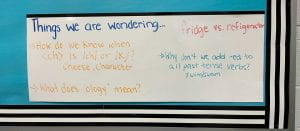 Things we are wondering...
fridge vs. refrigerator
- How do we know when
<ch> is /ch/ or /k/?
cheese, character
- What does "ology" mean?
- Why don't we add -ed to
all past tense verbs?
swimswam